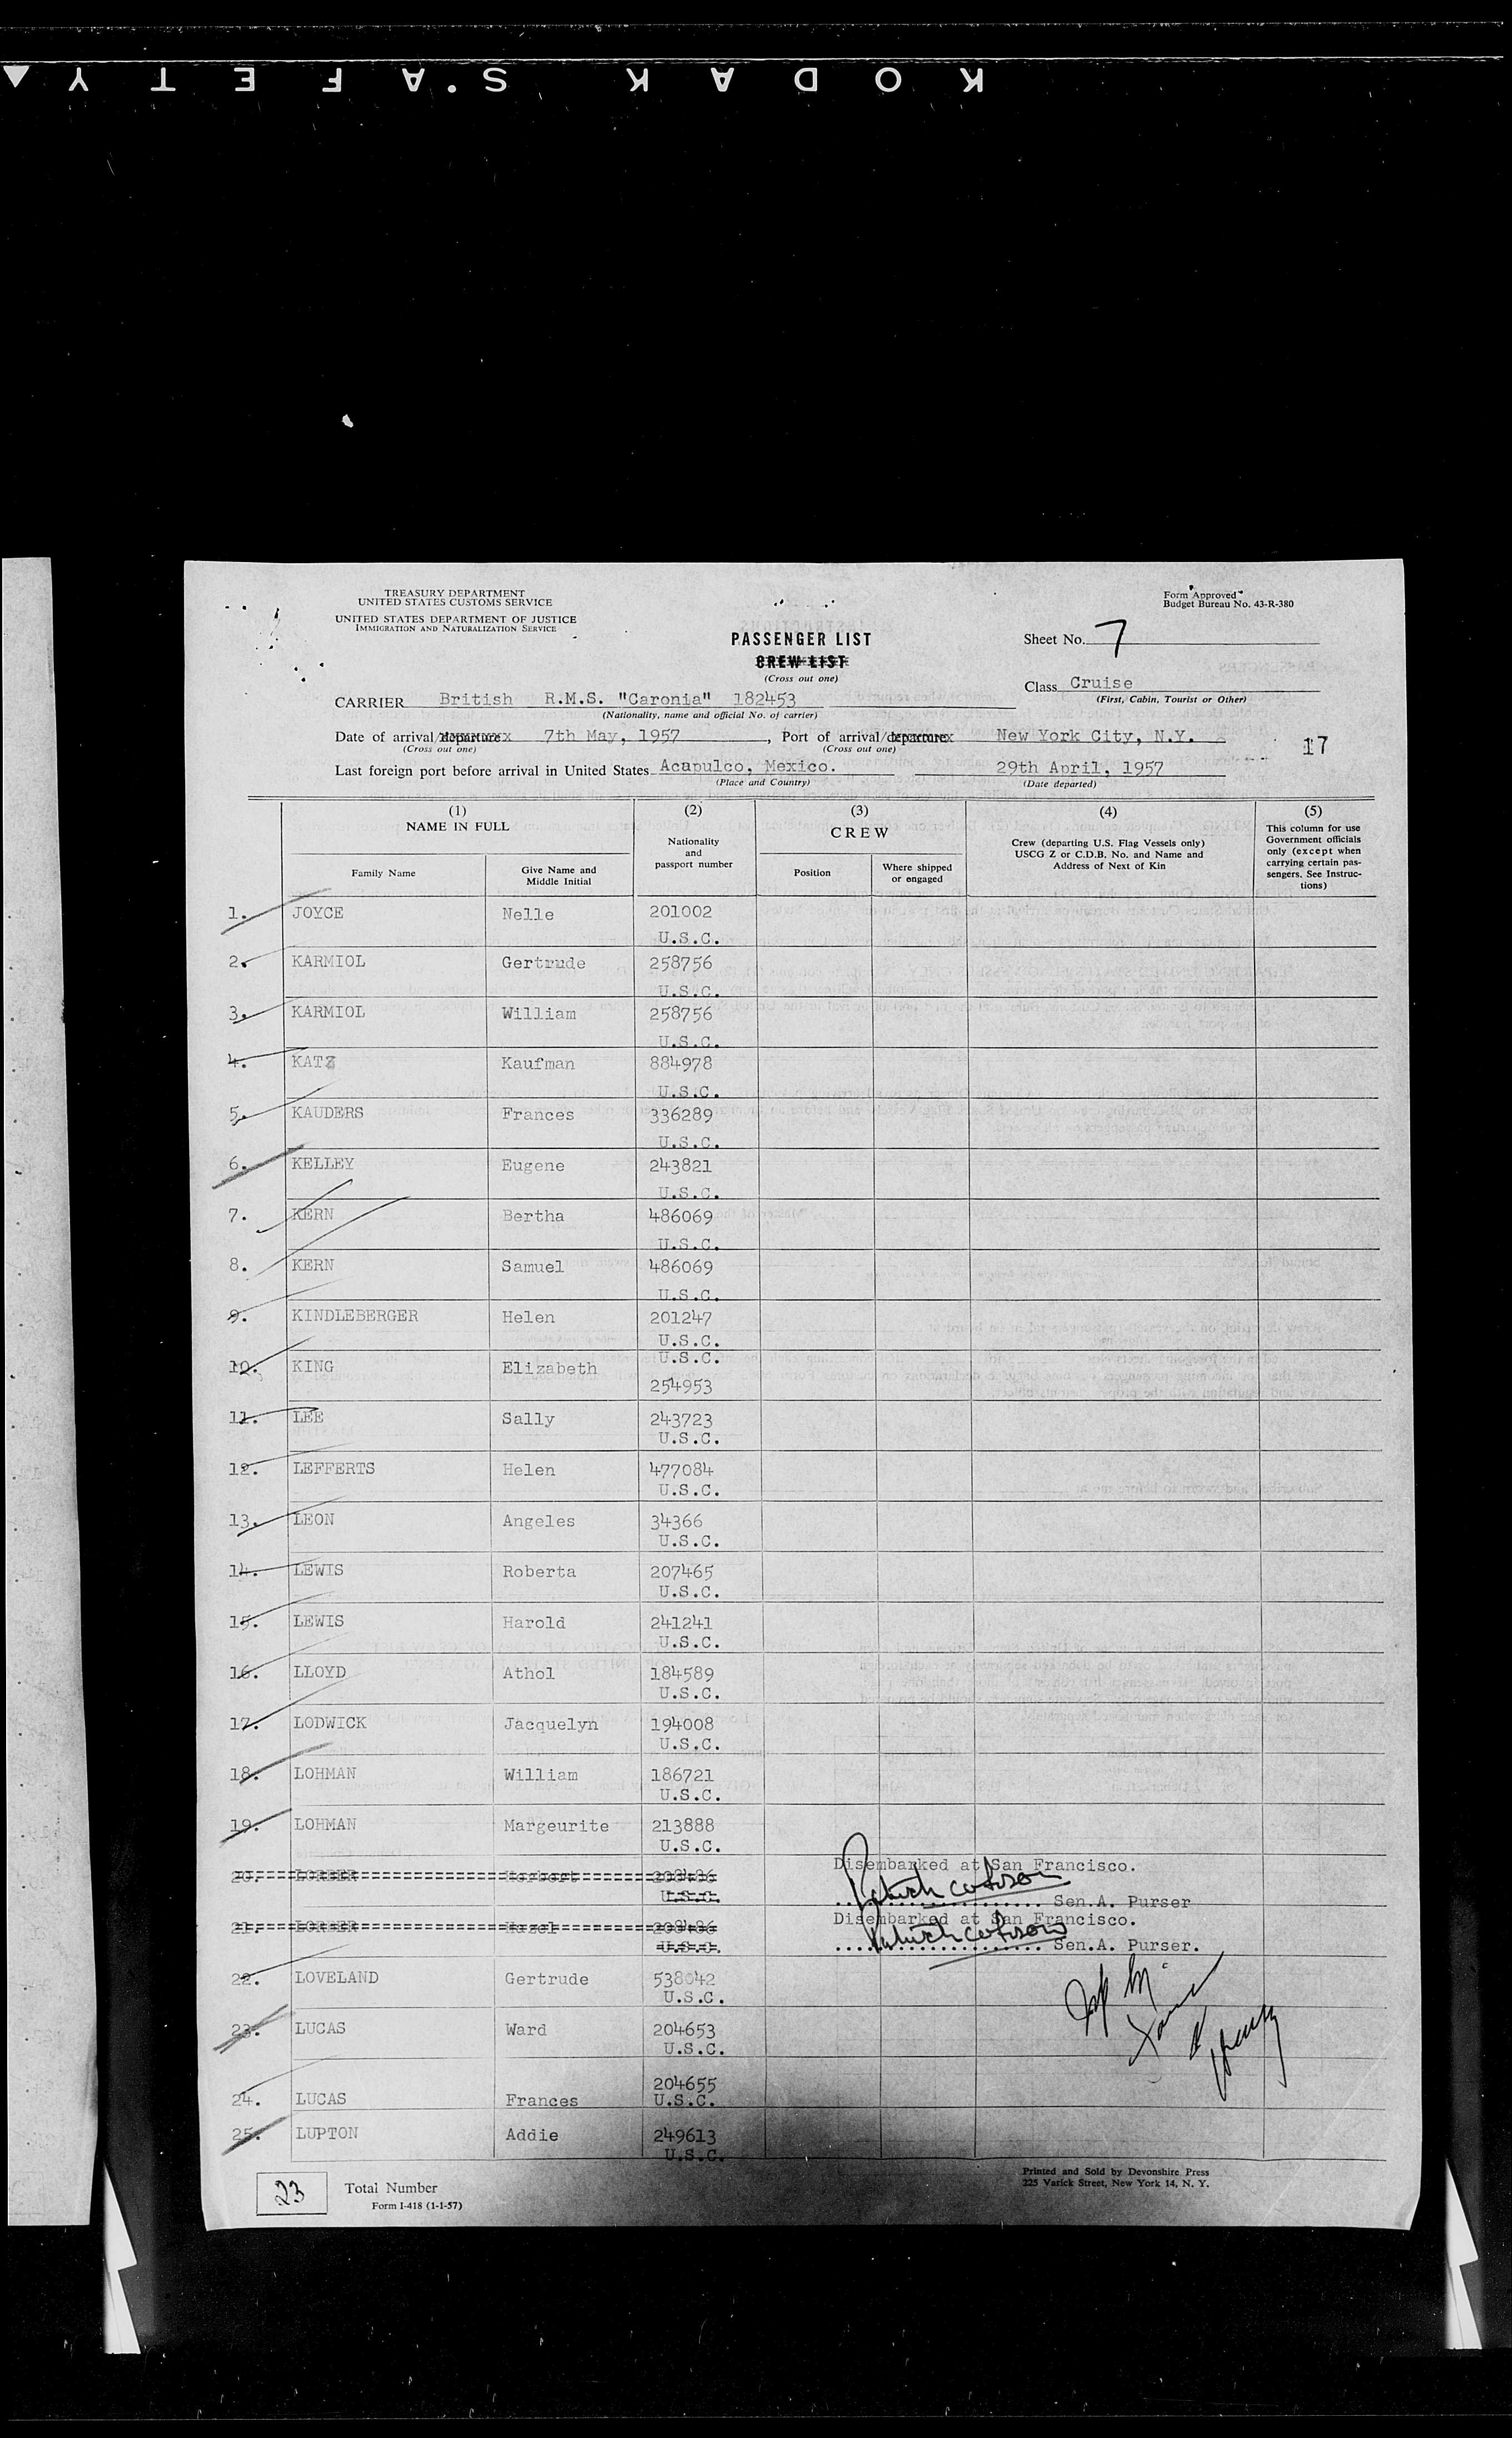 KODAK SAFETY
TREASURY DEPARTMENT
UNITED STATES CUSTOMS SERVICE
UNITED STATES DEPARTMENT OF JUSTICE
IMMIGRATION AND NATURALIZATION SERVICE
Form Approved
Budget Bureau No. 43-R-380
PASSENGER LIST
CREW LIST
(Cross out one)
Sheet No. 7
Class Cruise
(First, Cabin, Tourist or Other)
CARRIER British R.M.S. "Caronia" 182453
(Nationality, name and official No. of carrier)
Date of arrival/departure 7th May, 1957, Port of arrival/departure New York City, N.Y.
(Cross out one) (Cross out one)
17
Last foreign port before arrival in United States Acapulco, Mexico. 29th April, 1957
(Place and Country) (Date departed)
(1) (2) (3) (4) (5)
NAME IN FULL Nationality and passport number CREW Crew (departing U.S. Flag Vessels only) USCG Z or C.D.B. No. and Name and Address of Next of Kin This column for use Government officials only (except when carrying certain passengers. See Instructions)
Family Name Give Name and Middle Initial Position Where shipped or engaged
1. JOYCE Nelle 201002
U.S.C.
2. KARMIOL Gertrude 258756
U.S.C.
3. KARMIOL William 258756
U.S.C.
4. KATZ Kaufman 884978
U.S.C.
5. KAUDERS Frances 336289
U.S.C.
6. KELLEY Eugene 243821
U.S.C.
7. KERN Bertha 486069
U.S.C.
8. KERN Samuel 486069
U.S.C.
9. KINDLEBERGER Helen 201247
U.S.C.
10. KING Elizabeth U.S.C.
254953
11. LEE Sally 243723
U.S.C.
12. LEFFERTS Helen 477084
U.S.C.
13. LEON Angeles 34366
U.S.C.
14. LEWIS Roberta 207465
U.S.C.
15. LEWIS Harold 241241
U.S.C.
16. LLOYD Athol 184589
U.S.C.
17. LODWICK Jacquelyn 194008
U.S.C.
18. LOHMAN William 186721
U.S.C.
19. LOHMAN Margeurite 213888
U.S.C.
20. LORBER Herbert 208486 Disembarked at San Francisco.
U.S.C. Sen.A. Purser
21. LORBER Hazel 208486 Disembarked at San Francisco.
U.S.C. Sen.A. Purser.
22. LOVELAND Gertrude 538042
U.S.C.
23. LUCAS Ward 204653
U.S.C.
24. LUCAS Frances 204655
U.S.C.
25. LUPTON Addie 249613
U.S.C.
23 Total Number
Form I-418 (1-1-57)
Printed and Sold by Devonshire Press
225 Varick Street, New York 14, N. Y.